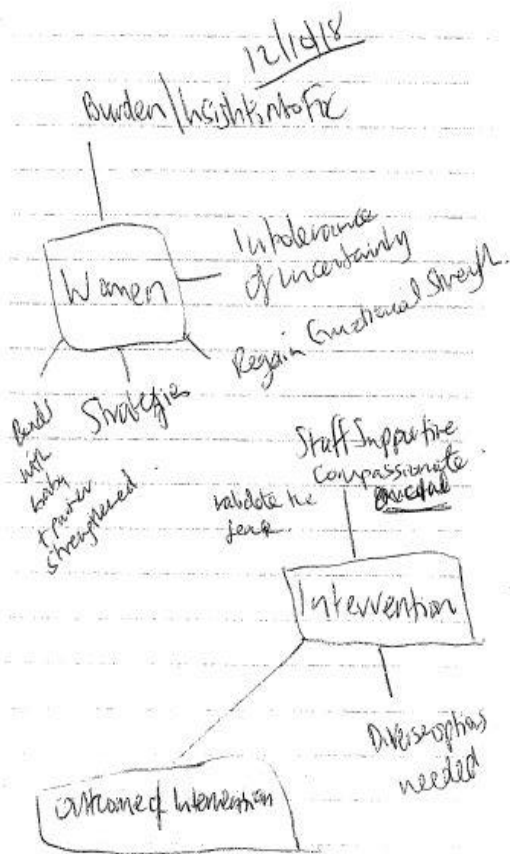 12/10/18
Burden/Insights into FOC
Women
Intolerance
of uncertainty
Regain Emotional Strength.
Strategies
Bonds
with
baby
+ partner
strengthened
Staff Supportive
compassionate
crucial
validate the
fear.
Intervention
Diverse options
needed
Outcome of Intervention